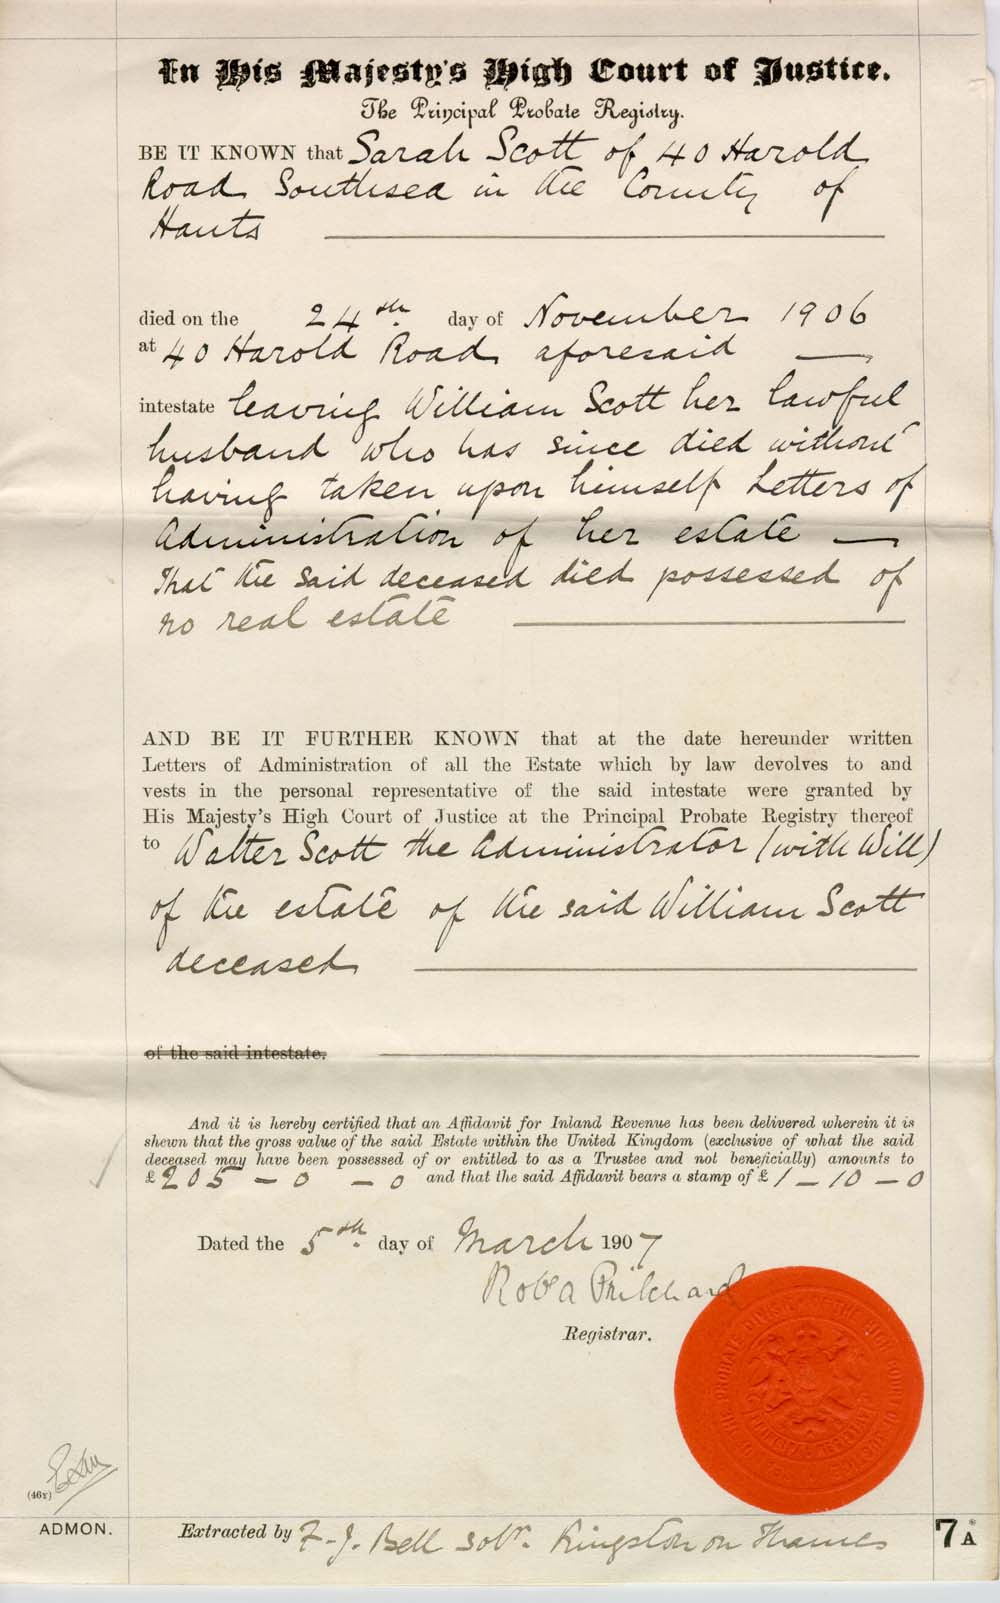 In His Majesty's High Court of Justice.
The Principal Probate Registry.
BE IT KNOWN that Sarah Scott of 40 Harold
Road Southsea in the County of
Hants
died on the 24th day of November 1906
at 40 Harold Road aforesaid
intestate leaving William Scott her lawful
husband who has since died without
having taken upon himself Letters of
Administration of her estate
That the said deceased died possessed of
no real estate
AND BE IT FURTHER KNOWN that at the date hereunder written
Letters of Administration of all the Estate which by law devolves to and
vests in the personal representative of the said intestate were granted by
His Majesty's High Court of Justice at the Principal Probate Registry thereof
to Walter Scott the Administrator (with Will)
of the estate of the said William Scott
deceased
of the said intestate.
And it is hereby certified that an Affidavit for Inland Revenue has been delivered wherein it is
shewn that the gross value of the said Estate within the United Kingdom (exclusive of what the said
deceased may have been possessed of or entitled to as a Trustee and not beneficially) amounts to
£205 - 0 - 0 and that the said Affidavit bears a stamp of £1 - 10 - 0
Dated the 5th day of March 1907
Rob A Pritchard
Registrar.
(46r)
ADMON.
Extracted by F. J. Bell Solr. Kingston on Thames
7A*